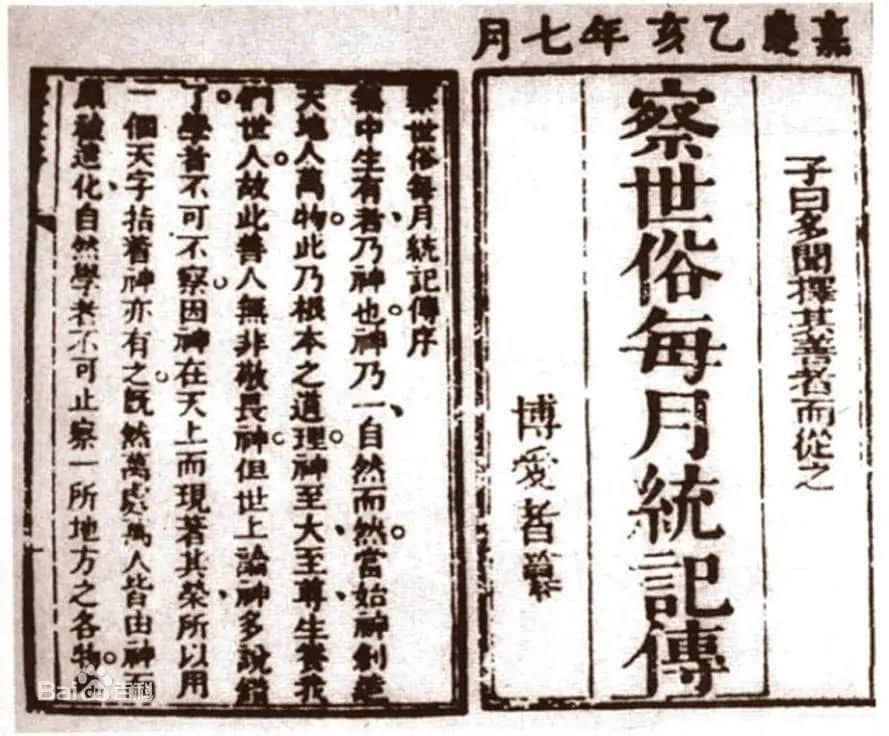 嘉慶乙亥年七月
子曰多聞擇其善者而從之
察世俗每月統記傳
博愛者纂
察世俗每月統記傳序
無中生有者、乃神也。神乃一、自然而然。當始神創造
天地人萬物。此乃根本之道理。神至大、至尊、生養我
們世人。故此善人無非敬畏神。但世上論神多說錯
了。學者不可不察。因神在天上而現著其榮、所以用
一個天字指著神亦有之。既然萬處萬人皆由神而
原被造化、自然學者不可止察一所地方之各物。
Baidu百科